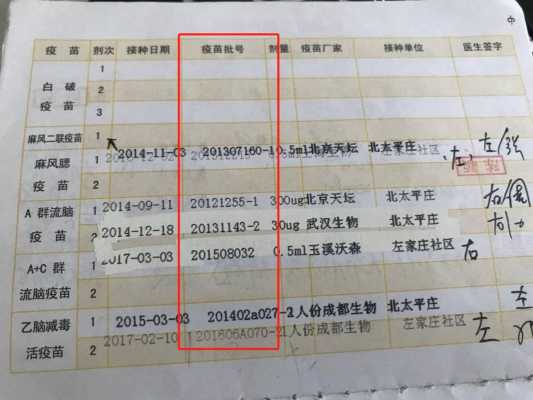 疫苗 剂次 接种日期 疫苗批号 剂量 疫苗厂家 接种单位 医生签字
1
白破 2
疫苗
3
麻风二联疫苗 1
2014-11-03 201307160-1 0.5ml北京天坛 北太平庄
麻风腮 1 左家庄社区
疫苗 2
A群流脑 1 2014-09-11 20121255-1 300ug北京天坛 北太平庄
疫苗 2 2014-12-18 20131143-2 30ug 武汉生物 北太平庄
A+C群 1 2017-03-03 201508032 0.5ml玉溪沃森 左家庄社区 右
流脑疫苗 2
乙脑减毒 1 2015-03-03 201402a027-2 1人份成都生物 北太平庄 左
活疫苗 2 2017-02-10 201606A070-2 1人份成都生物 左家庄社区 左